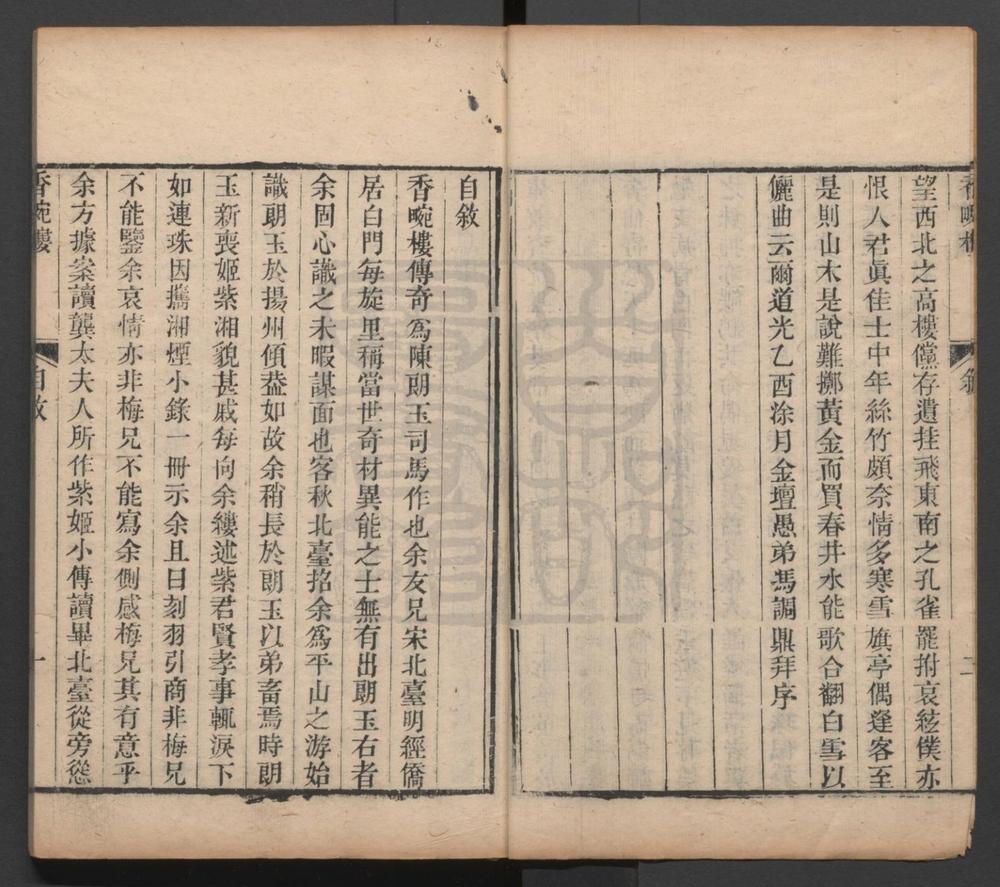 望西北之高樓儻存遺挂飛東南之孔雀罷拊哀絃僕亦
恨人君眞佳士中年絲竹頗奈情多寒雪旗亭偶逢客至
是則山木是說難擲黃金而買春井水能歌合翻白雪以
儷曲云爾道光乙酉涂月金壇愚弟馮調鼎拜序
二
自敘
香畹樓傳奇為陳朗玉司馬作也余友兄宋北臺明經僑
居白門每旋里稱當世奇材異能之士無有出朗玉右者
余固心識之未暇謀面也客秋北臺招余為平山之游始
識朗玉於揚州傾葢如故余稍長於朗玉以弟畜焉時朗
玉新喪姬紫湘貌甚戚每向余縷述紫君賢孝事輒淚下
如連珠因攜湘煙小錄一冊示余且曰刻羽引商非梅兄
不能鑒余哀情亦非梅兄不能寫余側感梅兄其有意乎
余方據案讀龔太夫人所作紫姬小傳讀畢北臺從旁慫
香畹樓
自敘
一